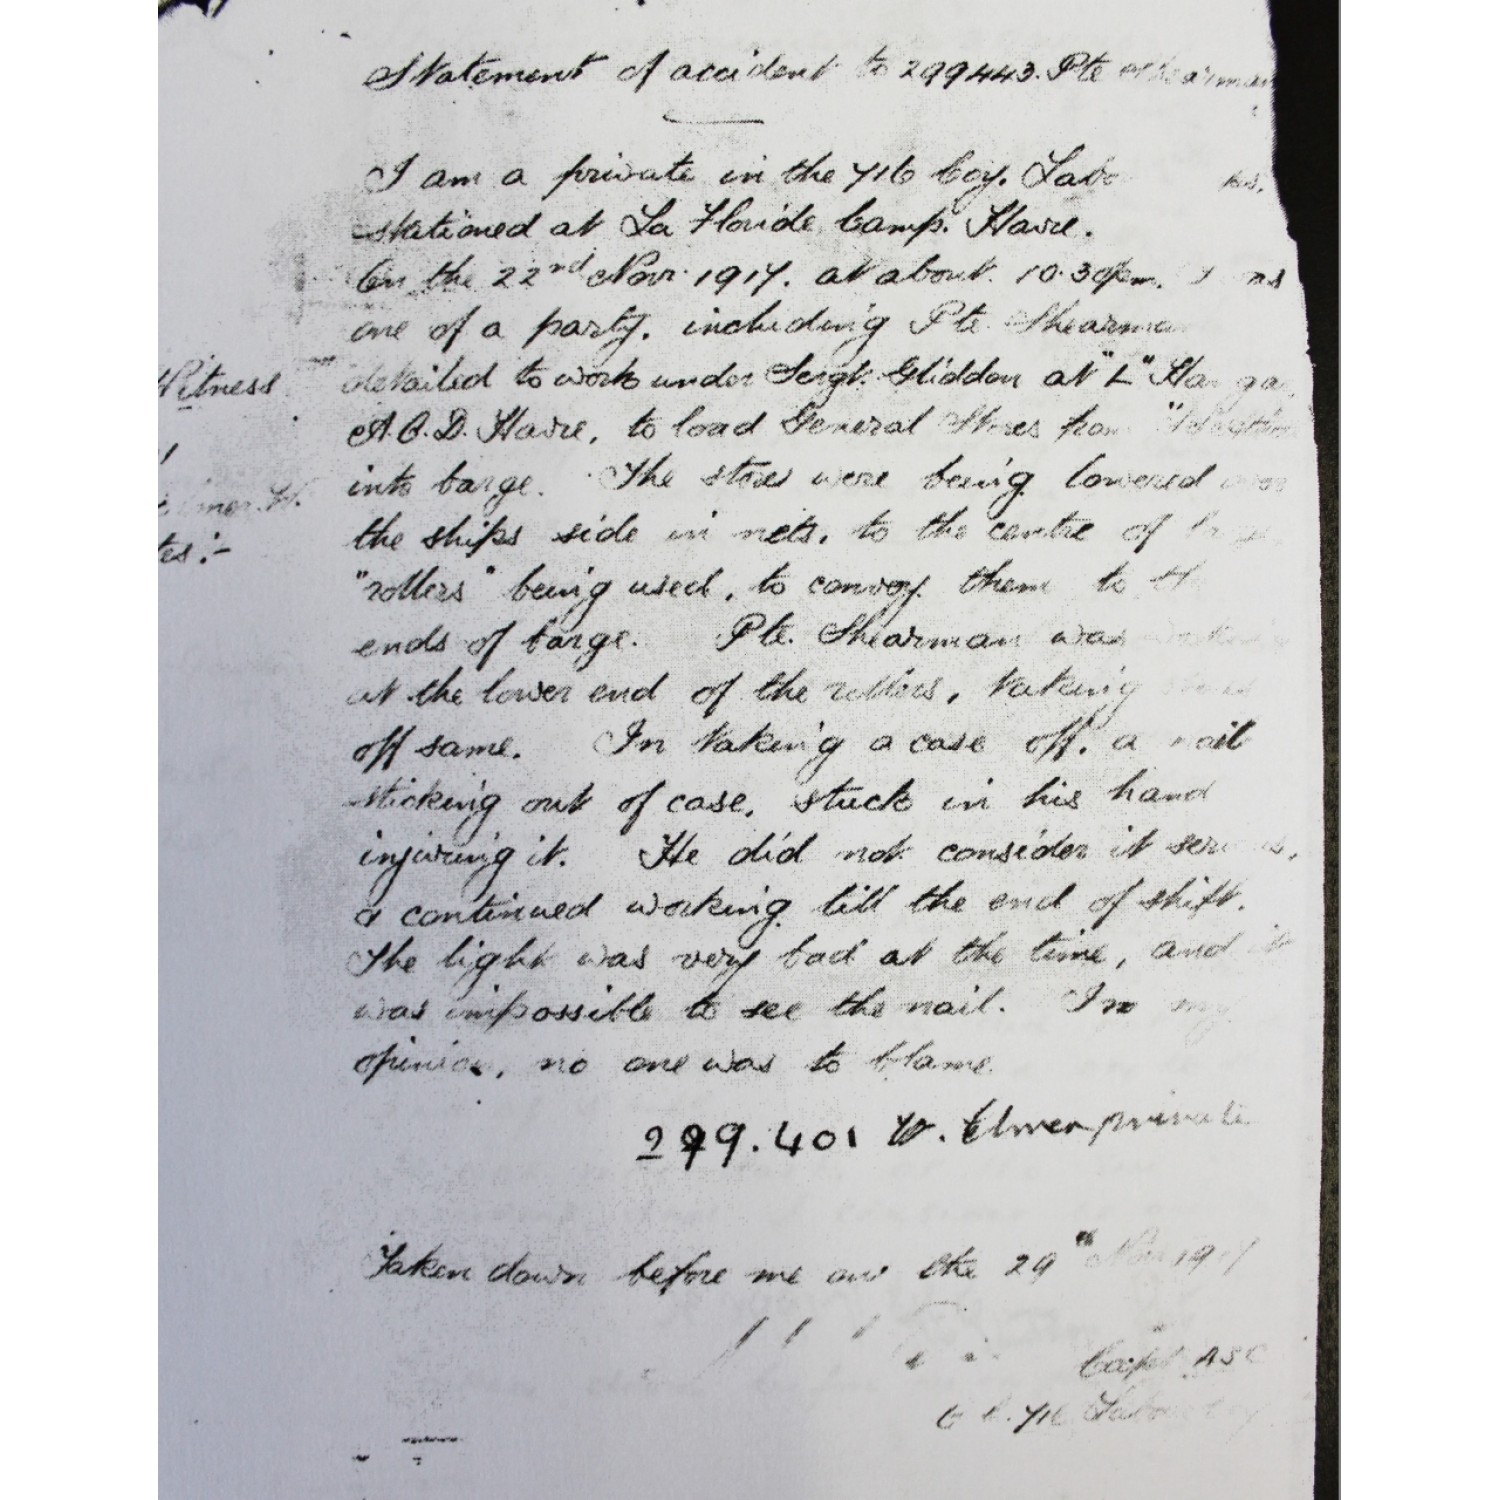 Statement of accident to 299443. Pte Shearman
I am a private in the 716 Coy. Labo
stationed at La Floride Camp. Havre.
On the 22nd Novr. 1917. at about 10.30pm. I was
one of a party, including Pte. Shearman
Witness
detailed to work under Sergt. Gliddon at "L" Hangar
A.O.D. Havre, to load General Stores from
into barge. The stores were being lowered over
the ships side in nets, to the centre of
tes:-
"rollers" being used, to convoy them to
ends of barge. Pte. Shearman was
at the lower end of the rollers, taking
off same. In taking a case off, a nail
sticking out of case, stuck in his hand
injuring it. He did not consider it serious,
a continued working till the end of shift.
The light was very bad at the time, and it
was impossible to see the nail. In my
opinion, no one was to blame.
299.401 W. Elmer private
Taken down before me on the 29th Nov 1917
Capt ASC
716 Labour Coy